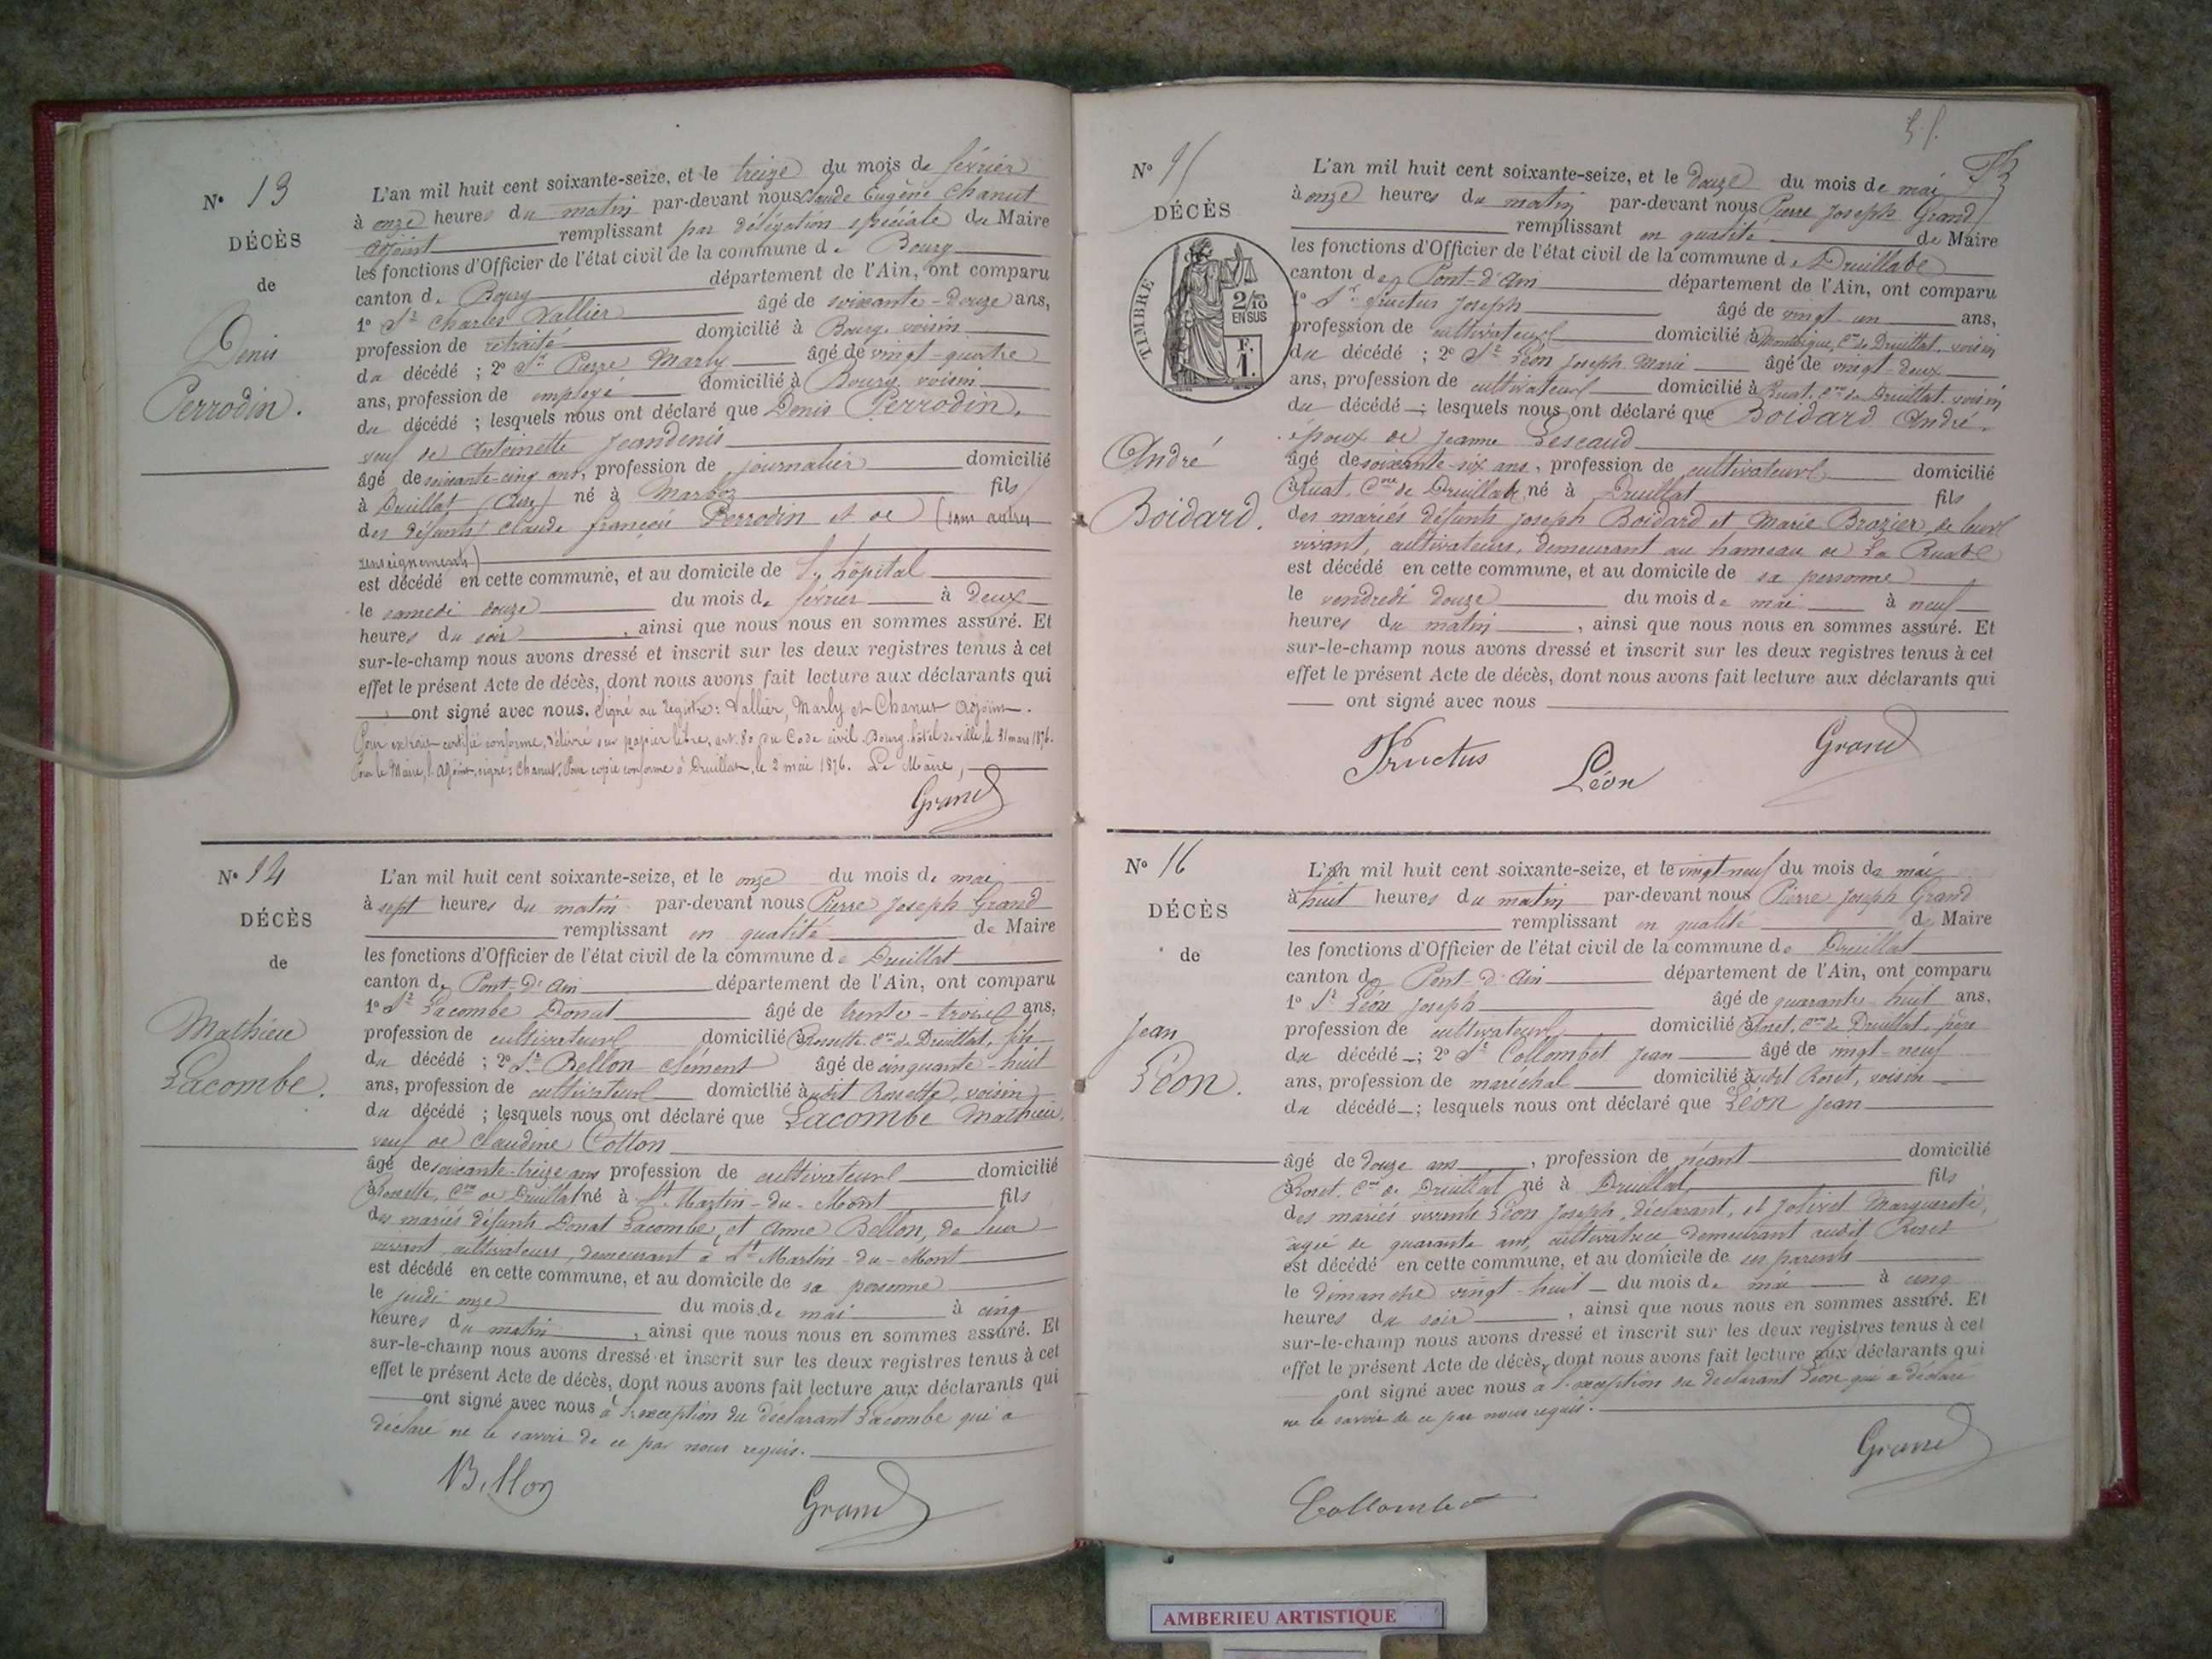 N° 13
DÉCÈS
de
Denis
Perrodin.
L'an mil huit cent soixante-seize, et le treize du mois de février
à onze heures du matin par-devant nous Claude Eugène Chanut
adjoint remplissant par délégation spéciale du Maire
les fonctions d'Officier de l'état civil de la commune de Bourg
canton de Bourg département de l'Ain, ont comparu
1° Sr Charles Vallier âgé de soixante-douze ans,
profession de retraité domicilié à Bourg, voisin
du décédé ; 2° Sr Pierre Marly âgé de vingt-quatre
ans, profession de employé domicilié à Bourg voisin
du décédé ; lesquels nous ont déclaré que Denis Perrodin,
veuf de Antoinette Jeandenis
âgé de soixante-cinq ans, profession de journalier domicilié
à Druillat (Ain) né à Marboz fils
des défunts Claude françois Perrodin et de (sans autres
renseignements)
est décédé en cette commune, et au domicile de l'hôpital
le samedi douze du mois de février à deux
heures du soir, ainsi que nous nous en sommes assuré. Et
sur-le-champ nous avons dressé et inscrit sur les deux registres tenus à cet
effet le présent Acte de décès, dont nous avons fait lecture aux déclarants qui
ont signé avec nous. Signé au registre : Vallier, Marly et Chanut adjoint.
Pour extrait certifié conforme, délivré sur papier libre, art. 80 du Code civil. Bourg, hôtel de ville, le 31 mars 1876.
Pour le Maire, l'adjoint, signé : Chanut. Pour copie conforme à Druillat, le 2 mai 1876. Le Maire,
Grand
N° 14
DÉCÈS
de
Mathieu
Lacombe.
L'an mil huit cent soixante-seize, et le onze du mois de mai
à sept heures du matin par-devant nous Pierre Joseph Grand
remplissant en qualité de Maire
les fonctions d'Officier de l'état civil de la commune de Druillat
canton de Pont-d'Ain département de l'Ain, ont comparu
1° Sr Lacombe Donat âgé de trente-trois ans,
profession de cultivateur domicilié à Rossette, Cne de Druillat, fils
du décédé ; 2° Sr Bellon Clément âgé de cinquante-huit
ans, profession de cultivateur domicilié à udit Rossette, voisin
du décédé ; lesquels nous ont déclaré que Lacombe Mathieu,
veuf de Claudine Cotton
âgé de soixante-treize ans profession de cultivateur domicilié
à Rossette, Cne de Druillat né à St Martin-du-Mont fils
des mariés défunts Donat Lacombe, et Anne Bellon, de leur
vivant, cultivateurs, demeurant à St Martin-du-Mont
est décédé en cette commune, et au domicile de sa personne
le jeudi onze du mois de mai à cinq
heures du matin, ainsi que nous nous en sommes assuré. Et
sur-le-champ nous avons dressé et inscrit sur les deux registres tenus à cet
effet le présent Acte de décès, dont nous avons fait lecture aux déclarants qui
ont signé avec nous à l'exception du déclarant Lacombe qui a
déclaré ne le savoir de ce par nous requis.
Bellon
Grand
N° 15
DÉCÈS
TIMBRE
2/10
EN SUS
F.
1.
André
Boidard.
L'an mil huit cent soixante-seize, et le douze du mois de mai
à onze heures du matin par-devant nous Pierre Joseph Grand
remplissant en qualité de Maire
les fonctions d'Officier de l'état civil de la commune de Druillat
canton de Pont-d'Ain département de l'Ain, ont comparu
1° Sr Fructus Joseph âgé de vingt un ans,
profession de cultivateur domicilié à Cne de Druillat, voisin
du décédé ; 2° Sr Léon Joseph Marie âgé de vingt-deux
ans, profession de cultivateur domicilié à Ruat, Cne de Druillat, voisin
du décédé ; lesquels nous ont déclaré que Boidard André,
époux de Jeanne
âgé de soixante-six ans, profession de cultivateur domicilié
à Ruat, Cne de Druillat né à Druillat fils
des mariés défunts Joseph Boidard et Marie Brazier, de leur
vivant, cultivateurs, demeurant au hameau de La Ruat
est décédé en cette commune, et au domicile de sa personne
le vendredi douze du mois de mai à neuf
heures du matin, ainsi que nous nous en sommes assuré. Et
sur-le-champ nous avons dressé et inscrit sur les deux registres tenus à cet
effet le présent Acte de décès, dont nous avons fait lecture aux déclarants qui
ont signé avec nous
Fructus
Léon
Grand
N° 16
DÉCÈS
de
Jean
Léon.
L'an mil huit cent soixante-seize, et le vingt-neuf du mois de mai
à huit heures du matin par-devant nous Pierre Joseph Grand
remplissant en qualité de Maire
les fonctions d'Officier de l'état civil de la commune de Druillat
canton de Pont-d'Ain département de l'Ain, ont comparu
1° Sr Léon Joseph âgé de quarante-huit ans,
profession de cultivateur domicilié à Roset, Cne de Druillat, père
du décédé ; 2° Sr Collombet Jean âgé de vingt-neuf
ans, profession de maréchal domicilié à udit Roset, voisin
du décédé ; lesquels nous ont déclaré que Léon Jean
âgé de douze ans, profession de néant domicilié
à Roset, Cne de Druillat né à Druillat fils
des mariés vivants Léon Joseph, déclarant, et Jolivet Marguerite,
âgée de quarante ans, cultivatrice demeurant audit Roset
est décédé en cette commune, et au domicile de ses parents
le dimanche vingt-huit du mois de mai à cinq
heures du soir, ainsi que nous nous en sommes assuré. Et
sur-le-champ nous avons dressé et inscrit sur les deux registres tenus à cet
effet le présent Acte de décès, dont nous avons fait lecture aux déclarants qui
ont signé avec nous à l'exception du déclarant Léon qui a déclaré
ne le savoir de ce par nous requis.
Grand
Collombet
AMBERIEU ARTISTIQUE